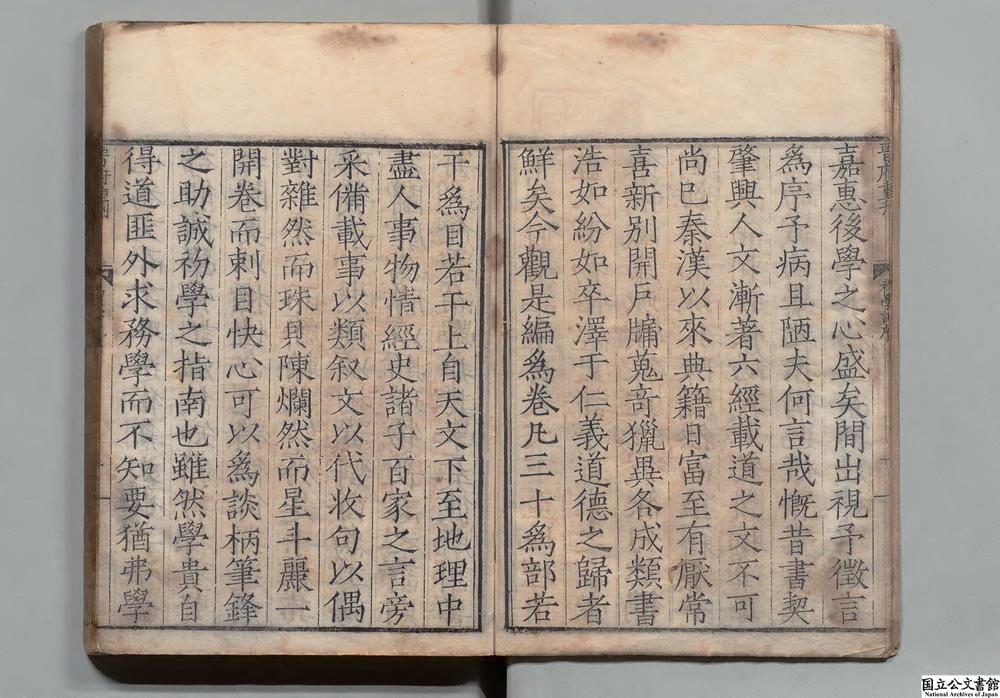 嘉惠後學之心盛矣間出視予徵言
為序予病且陋夫何言哉慨昔書契
肇興人文漸著六經載道之文不可
尚已秦漢以來典籍日富至有厭常
喜新別開戶牖蒐奇獵異各成類書
浩如紛如卒澤于仁義道德之歸者
鮮矣今觀是編為卷凡三十為部若
干為目若干上自天文下至地理中
盡人事物情經史諸子百家之言旁
采備載事以類叙文以代收句以偶
對雜然而珠貝陳爛然而星斗麗一
開卷而刺目快心可以為談柄筆鋒
之助誠初學之指南也雖然學貴自
得道匪外求務學而不知要猶弗學
国立公文書館
National Archives of Japan